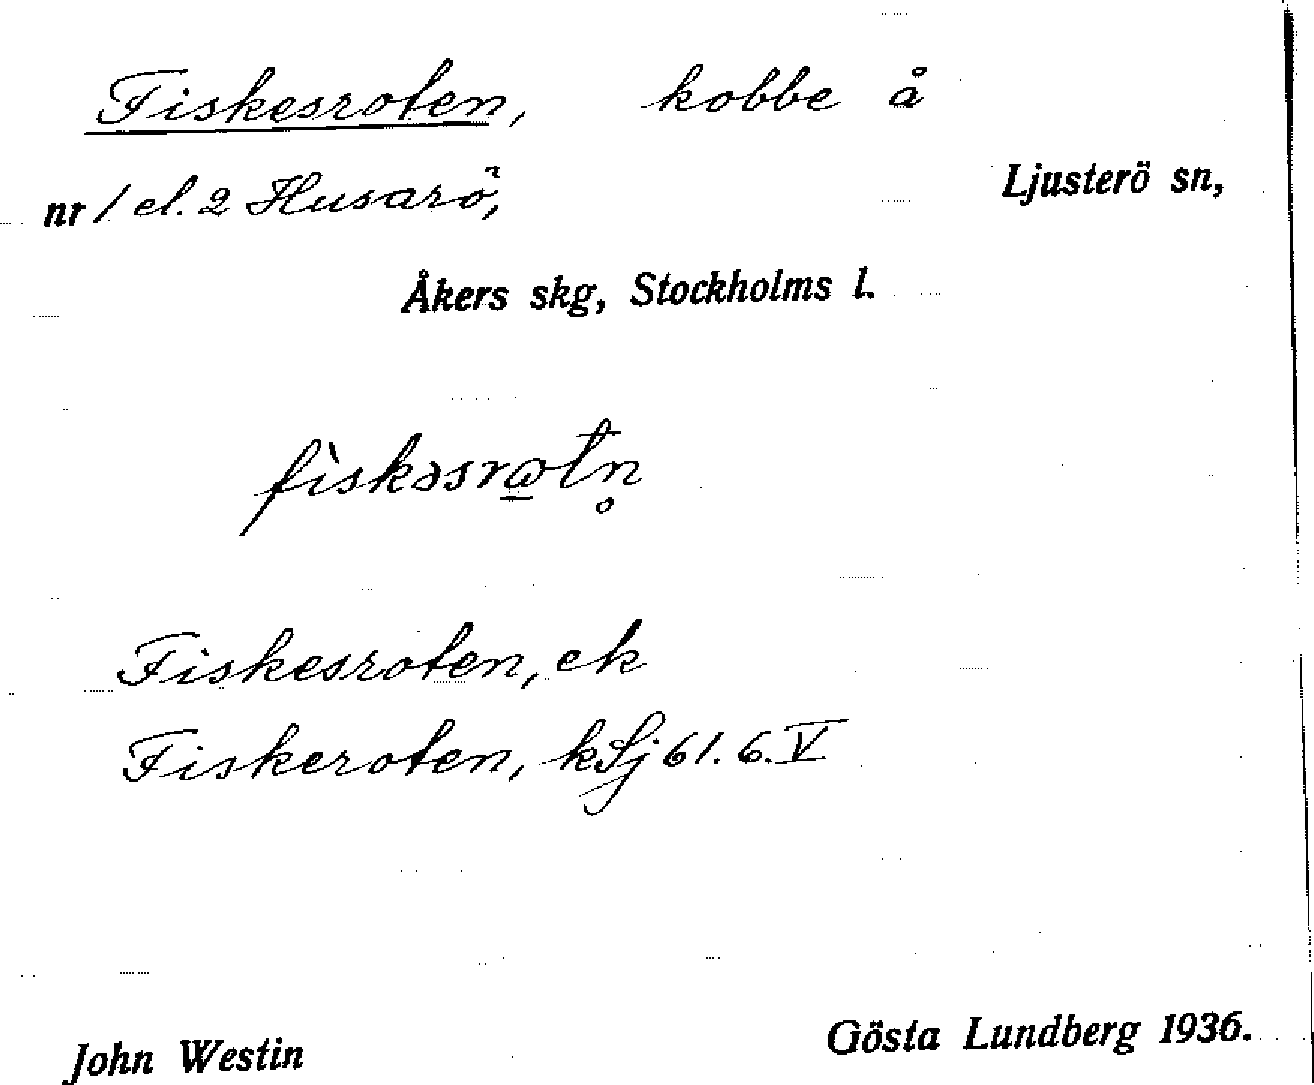 Fiskesroten, kobbe å
nr 1 el. 2 Husarö, Ljusterö sn,
Åkers skg, Stockholms l.
fìskəsrωtn̥
Fiskesroten, ek
Fiskeroten, kSj 61. 6. V
John Westin Gösta Lundberg 1936.